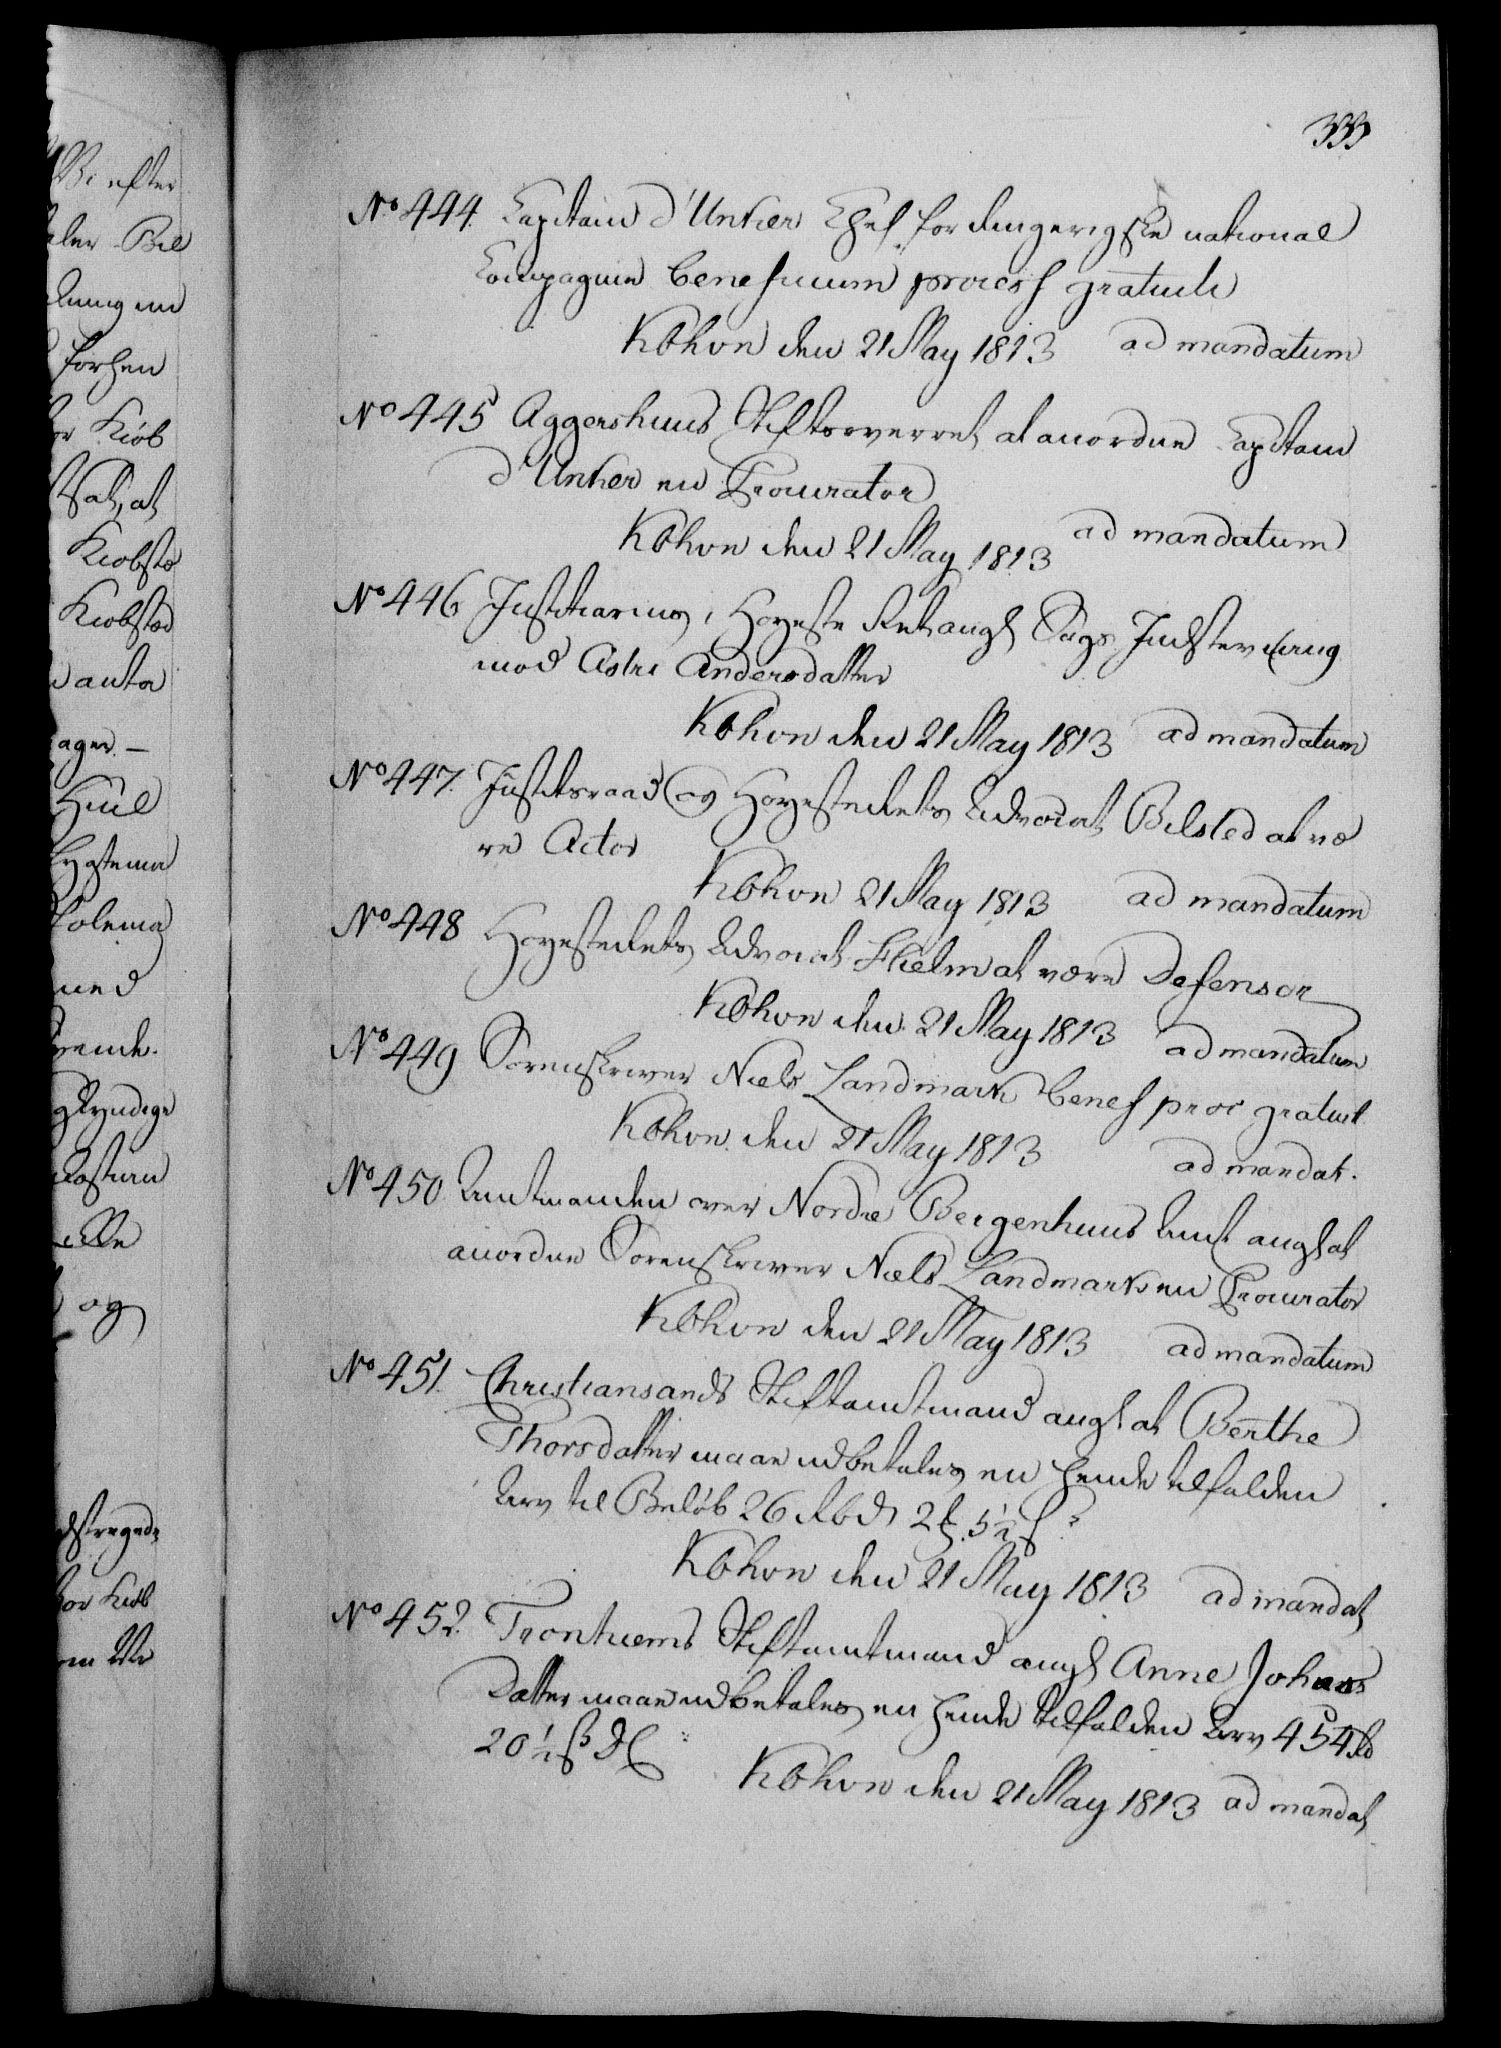 333
No 444. Capitain d'Unker Chef for Ringerigske national
Compagnie beneficium process gratuiti
Kbhvn den 21 May 1813 ad mandatum
No 445 Aggershuus Stiftsoverret at anordne Capitain
d'Unker en Procurator
Kbhvn den 21 May 1813 ad mandatum
No 446 Justitiarius i Høyeste Ret angl Sags Indstevning
mod Astri Andersdatter
Kbhvn den 21 May 1813 ad mandatum
No 447. Justitsraad og Høyesterets Advocat Bilsted at væ
re Actor
Kbhvn 21 May 1813 ad mandatum
No 448 Høyesterets Advocat Hielm at være Defensor
Kbhvn den 21 May 1813 ad mandatum
No 449 Sorenskriver Niels Landmark benef proc gratuit
Kbhvn den 21 May 1813 ad mandat.
No 450 Amtmanden over Nordre Bergenhuus Amt angl at
anordne Sorenskriver Niels Landmark en Procurator
Kbhvn den 21 May 1813 ad mandatum
No 451. Christiansands Stiftamtmand angl at Berthe
Thorsdatter maae udbetales en hende tilfalden
Arv til Beløb 26 Rbd 2 ʒ 5½ s
Kbhvn den 21 May 1813 ad mandat
No 452. Tronhiems Stiftamtmand angl Anne Johns
Datter maae udbetales en hende tilfalden Arv 454 Rd
20½ s DC
Kbhvn den 21 May 1813 ad mandat